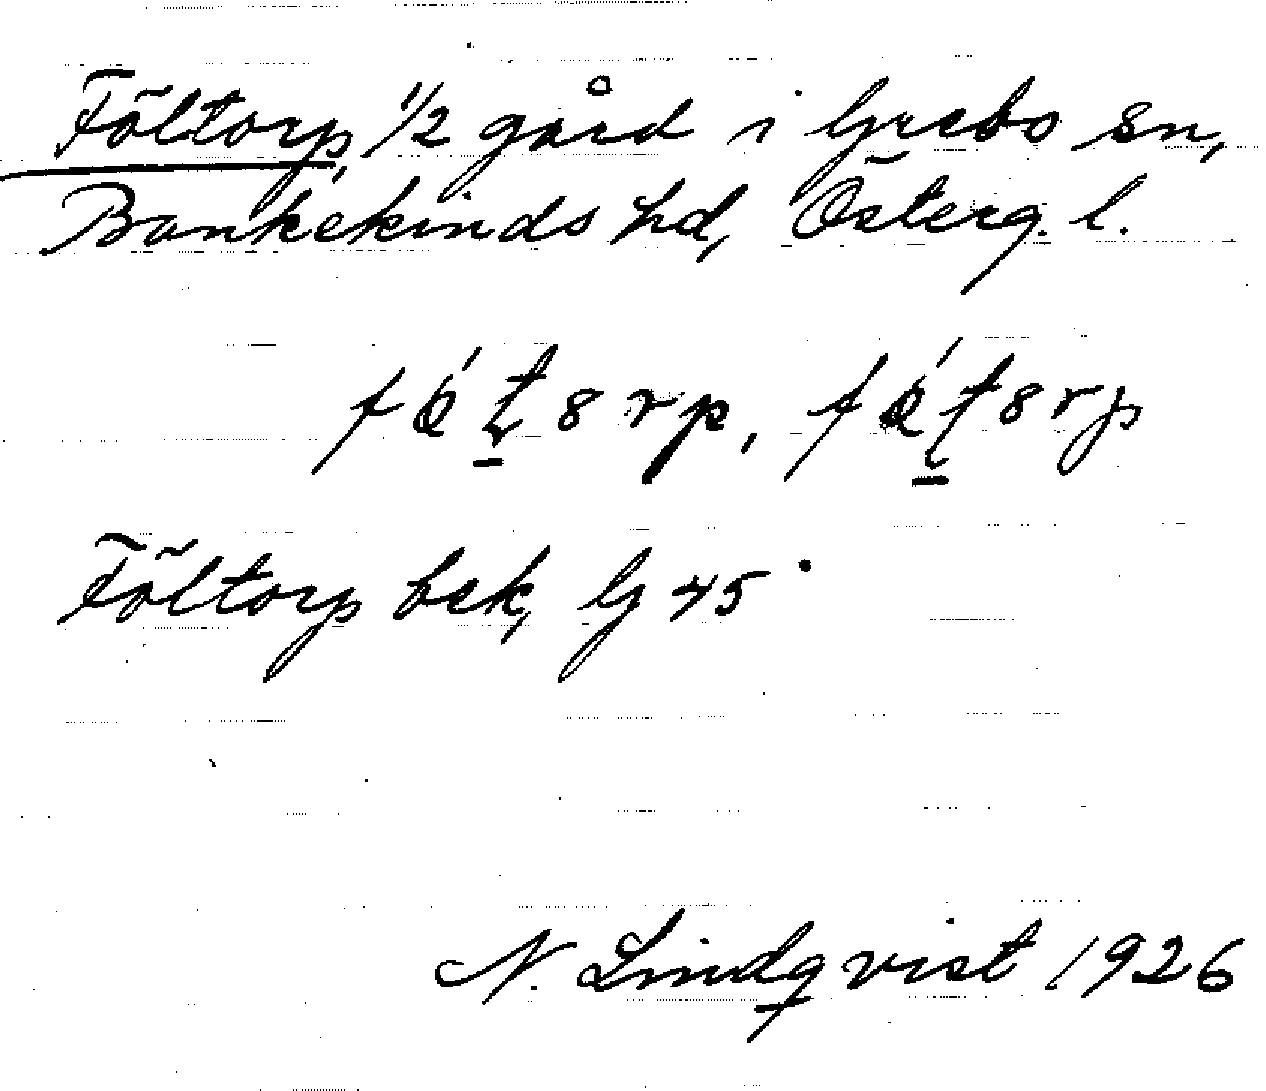 Föltorp, 1/2 gård i Grebo sn,
Bankekinds hd, Österg. l.
Föltorp bek, G 45
N. Lindqvist 1926